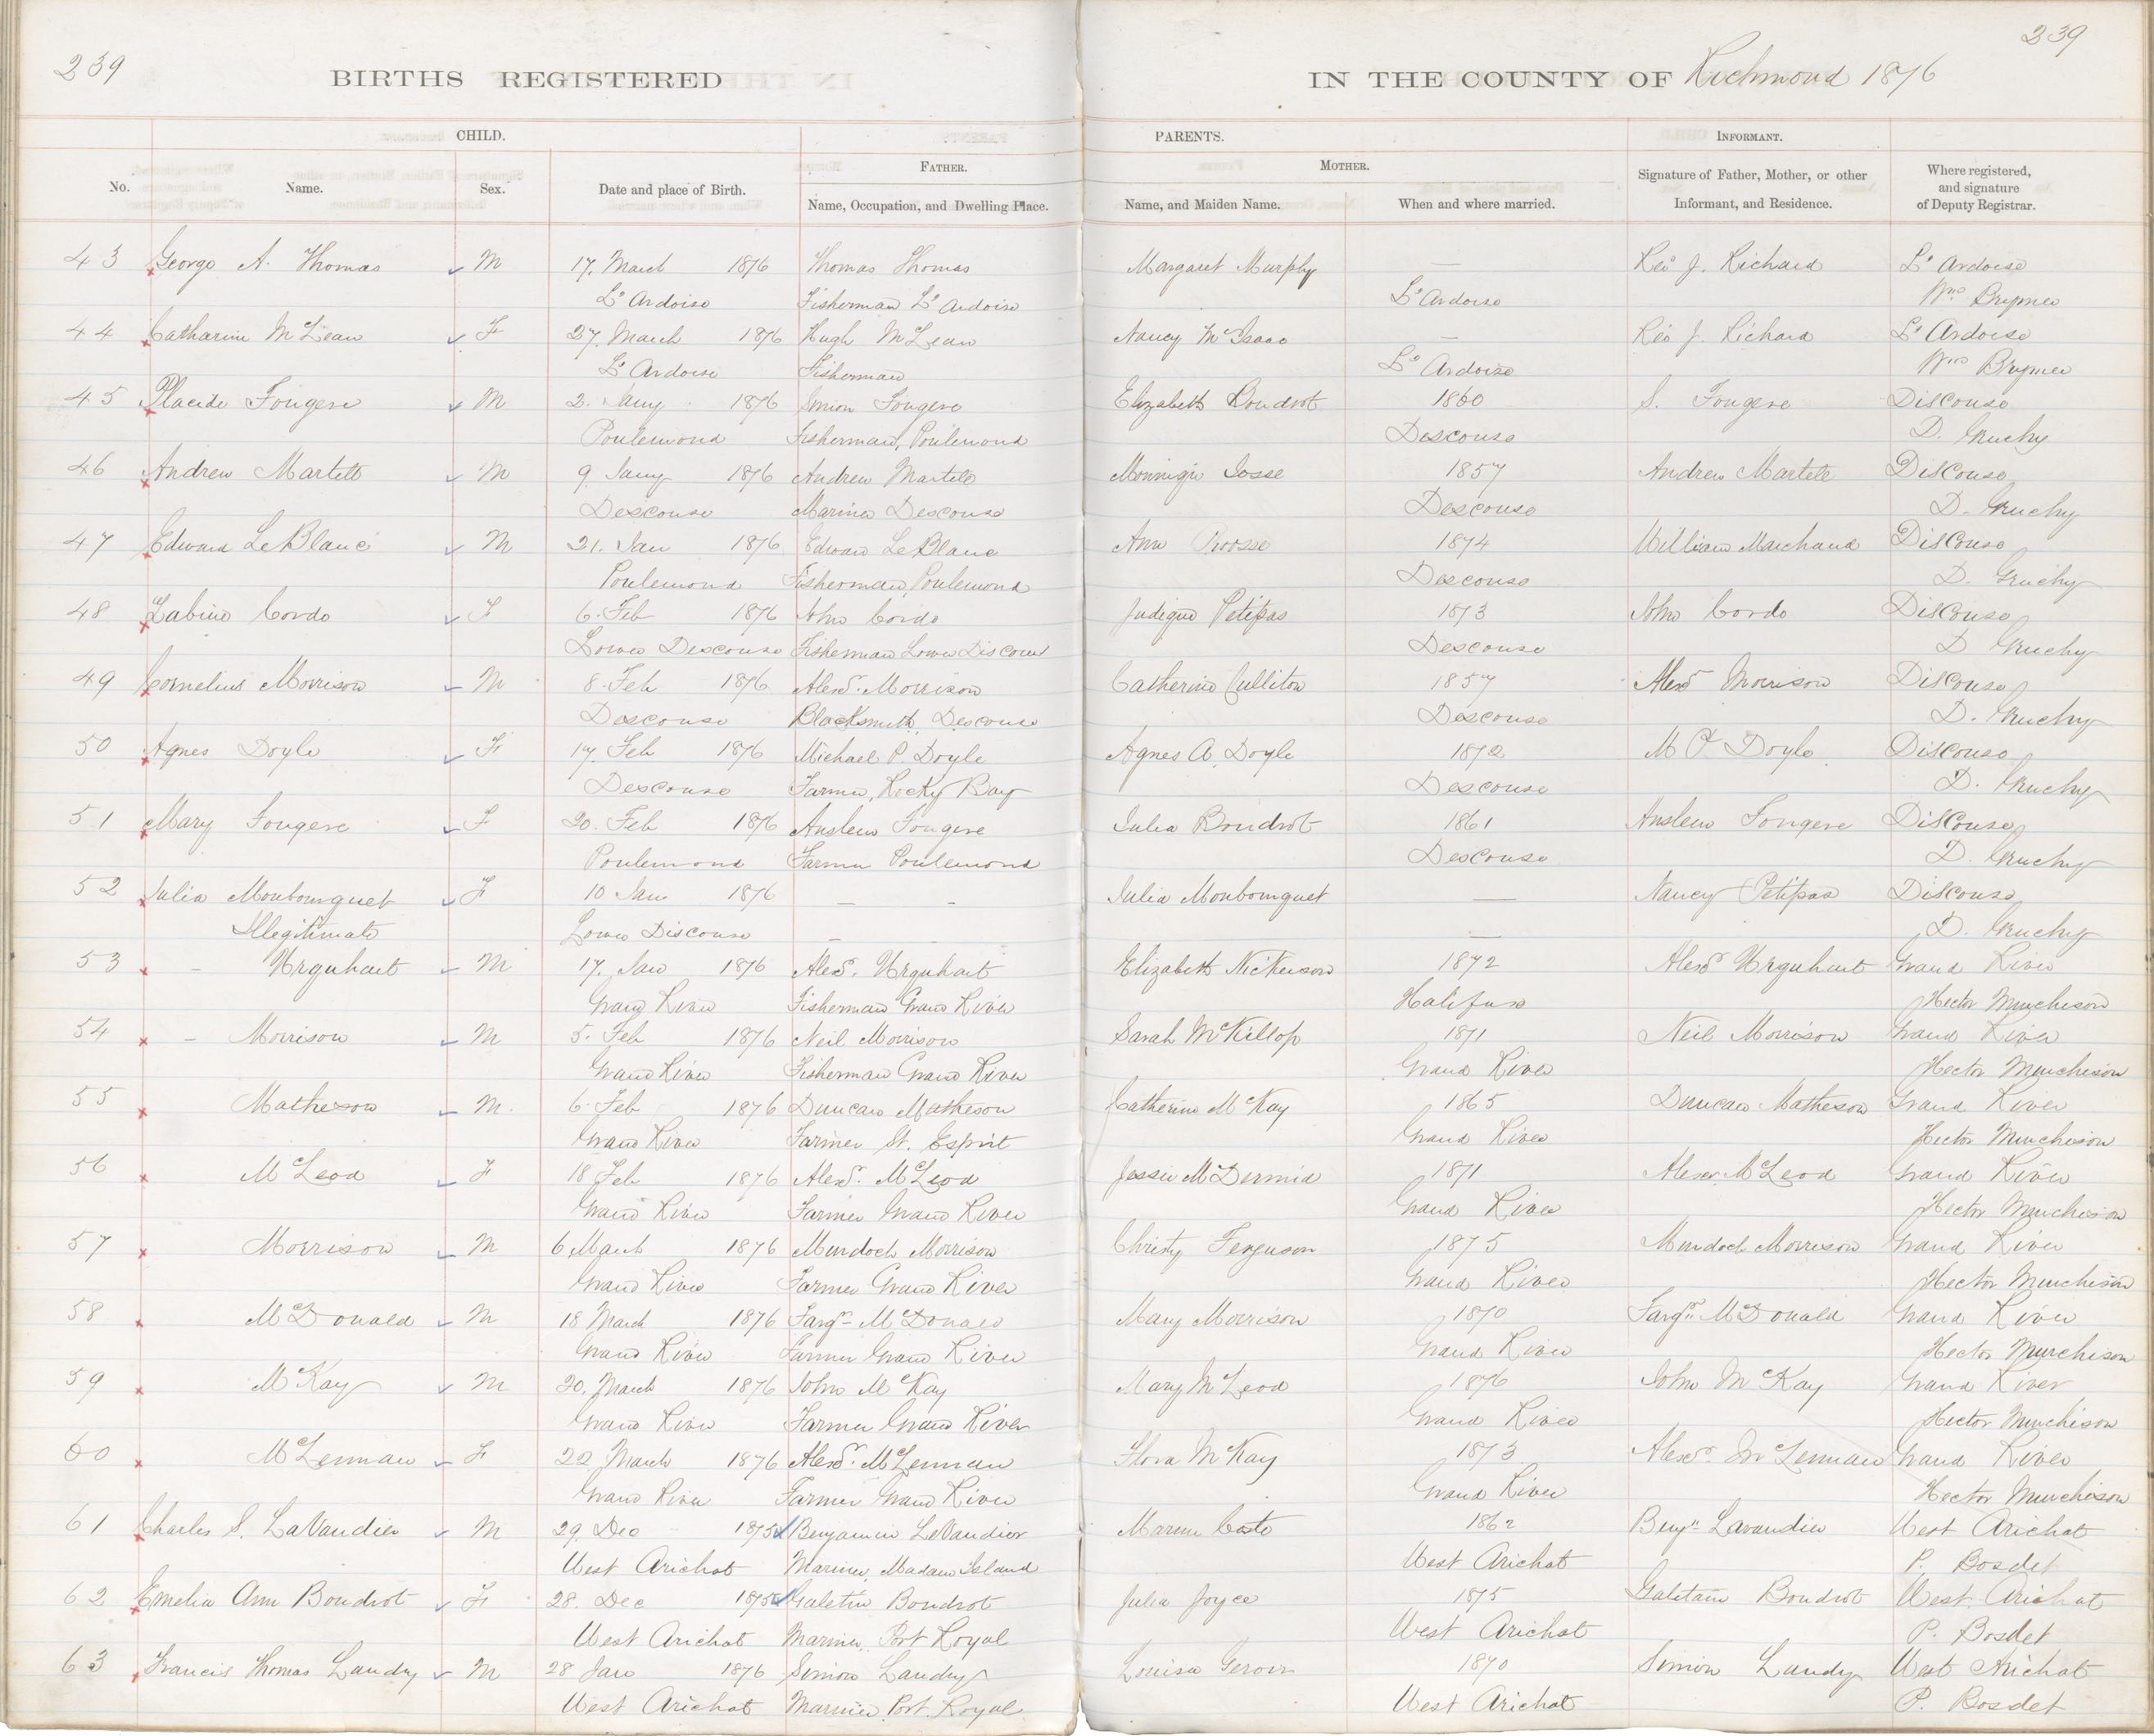 239
239
BIRTHS REGISTERED
IN THE COUNTY OF Richmond 1876
CHILD. PARENTS. INFORMANT.
FATHER. MOTHER.
No. Name. Sex. Date and place of Birth. Name, Occupation, and Dwelling Place. Name, and Maiden Name. When and where married. Signature of Father, Mother, or other Informant, and Residence. Where registered, and signature of Deputy Registrar.
43 George A. Thomas M 17. March 1876 Thomas Thomas Margaret Murphy — Rev J. Richard L'Ardoise
L'Ardoise Fisherman L'Ardoise L'Ardoise Wm Brymer
44 Catharine McLean F 27. March 1876 Hugh McLean Nancy McIsaac — Rev J. Richard L'Ardoise
L'Ardoise Fisherman L'Ardoise Wm Brymer
45 Placide Fougere M 2. Jany 1876 Simon Fougere Elizabeth Boudrot 1860 S. Fougere Discouse
Poulemond Fisherman, Poulemond Descouse D. Gruchy
46 Andrew Martell M 9 Jany 1876 Andrew Martell Josse 1857 Andrew Martell Discouse
Descouse Mariner Descouse Descouse D. Gruchy
47 Edward LeBlanc M 21. Jan 1876 Edward LeBlanc Ann 1874 William Marchand Discouse
Poulemond Fisherman, Poulemond Descouse D. Gruchy
48 Labine Cordo F 6. Feb 1876 John Cordo Judique Petipas 1873 John Cordo Discouse
Lower Descouse Fisherman Lower Discouse Descouse D Gruchy
49 Cornelius Morrison M 8. Feb 1876 Alexr. Morrison Catherine Culliton 1857 Alexr Morrison Discouse
Descouse Blacksmith, Descouse Descouse D. Gruchy
50 Agnes Doyle F 17. Feb 1876 Michael P. Doyle Agnes A. Doyle 1872 M P Doyle Discouse
Descouse Farmer, Rocky Bay Descouse D. Gruchy
51 Mary Fougere F 20. Feb 1876 Anslem Fougere Julia Boudrot 1861 Anslem Fougere Discouse
Poulemond Farmer Poulemond Descouse D. Gruchy
52 Julia Monbourquet F 10 Jan 1876 — - Julia Monbourquet — Nancy Petipas Discouse
Illegitimate Lower Discouse — - — D. Gruchy
53 - Urquhart M 17. Jan 1876 Alexr. Urquhart Elizabeth Nickerson 1872 Alexr Urquhart Grand River
Grand River Fisherman Grand River Halifax Hector Murchison
54 - Morrison M 5. Feb 1876 Neil Morrison Sarah McKillop 1871 Neil Morrison Grand River
Grand River Fisherman Grand River Grand River Hector Murchison
55 Matheson M. 6. Feb 1876 Duncan Matheson Catherine McKay 1865 Duncan Matheson Grand River
Grand River Farmer St. Esprit Grand River Hector Murchison
56 McLeod F 18 Feb 1876 Alexr. McLeod Jessie McDermid 1871 Alexr. McLeod Grand River
Grand River Farmer Grand River Grand River Hector Murchison
57 Morrison M 6 March 1876 Murdoch Morrison Christy Ferguson 1875 Murdoch Morrison Grand River
Grand River Farmer Grand River Grand River Hector Murchison
58 McDonald M 18 March 1876 Farqr McDonald Mary Morrison 1870 Farqr McDonald Grand River
Grand River Farmer Grand River Grand River Hector Murchison
59 McKay M 20. March 1876 John McKay Mary McLeod 1876 John McKay Grand River
Grand River Farmer Grand River Grand River Hector Murchison
60 McLennan F 22 March 1876 Alexr. McLennan Flora McKay 1873 Alexr. McLennan Grand River
Grand River Farmer Grand River Grand River Hector Murchison
61 Charles S. LaVandier M 29. Dec 1875 Benjamin LeVandier Coste 1862 Benjn Lavandier West Arichat
West Arichat Mariner, Madam Island West Arichat P. Bosdet
62 Emelia Ann Boudrot F 28. Dec 1875 Boudrot Julia Joyce 1875 Boudrot West Arichat
West Arichat Mariner, Port Royal West Arichat P. Bosdet
63 Francis Thomas Landry M 28 Jan 1876 Simon Landry Louisa 1870 Simon Landry West Arichat
West Arichat Mariner, Port. Royal West Arichat P. Bosdet